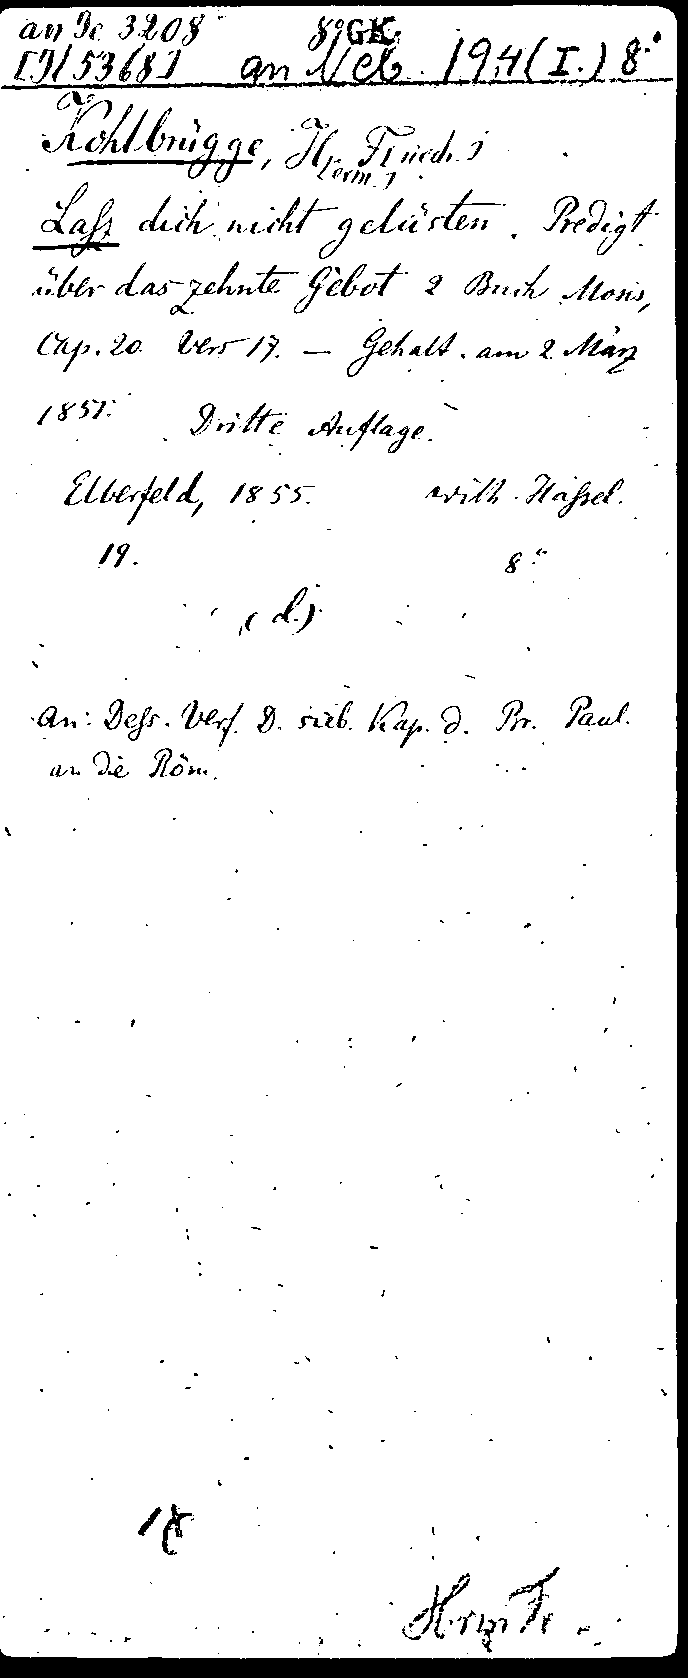 an Je 3208
89 GK.
[Jl 5368] an Neb. 194 (I.) 8°
Kohlbrügge, H[erm.] F[riedr.]
Lass dich nicht gelüsten. Predigt
über das zehnte Gebot 2 Buch Mosis,
Cap. 20. Vers 17. — Gehalt. am 2 März
1851. Dritte Auflage.
Elberfeld, 1855. Wilh. Hassel.
19. 8°
(d.)
an: Dess. Verf. D. sieb. Kap. d. Br. Paul.
an die Röm.